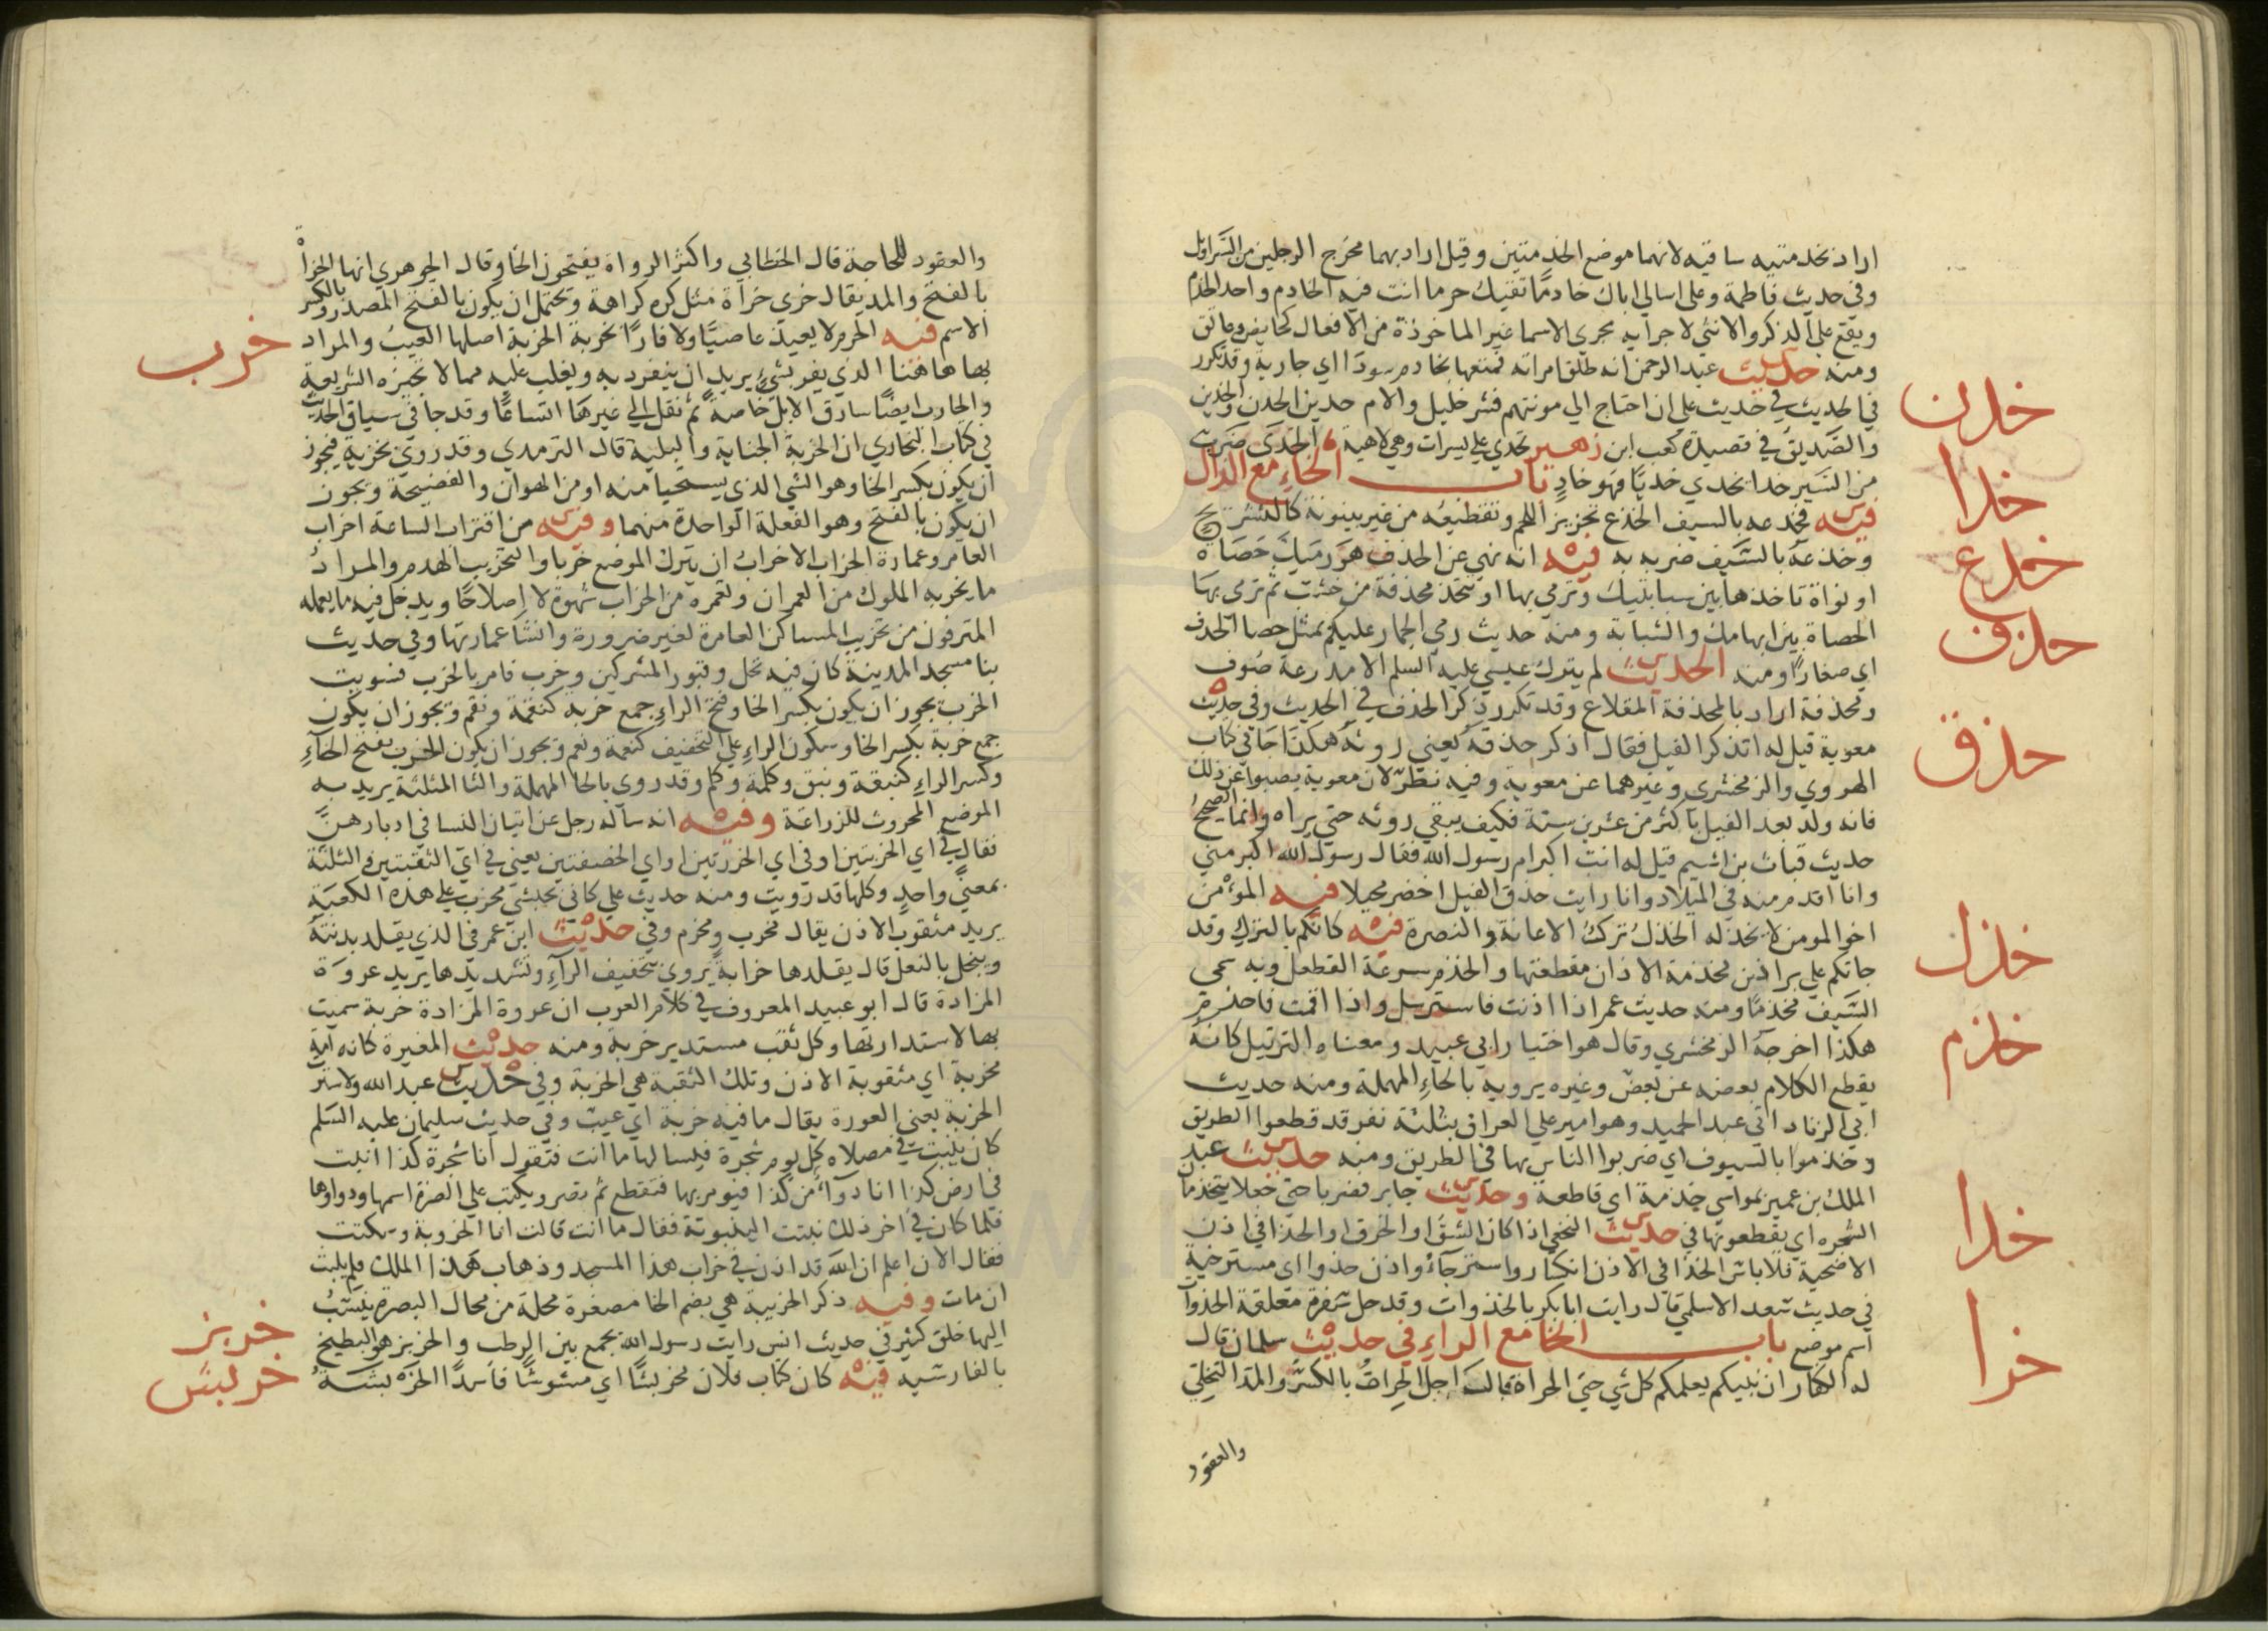 اراد بخدمتيه ساقيه لانهما موضع الخدمتين وقيل اراد بهما مخرج الرجلين من السراويل
وفي حديث فاطمة وعلي اسالي اباك خادما تقيك حر ما انت فيه الخادم واحد الخدم
ويقع علي الذكر والانثي لاجرايه مجري الاسما غير الماخوذة من الافعال كحايض وعاتق
ومنه حديث عبد الرحمن انه طلق امراته فمتعها بخادم سودا اي جارية وقد تكرر
خدن
في الحديث في حديث علي ان احتاج الي مونتهم فشر خليل والام خدين الخدن والخدين
خدا
والصديق في قصيدة كعب ابن زهير تخدي علي يسرات وهي لاهية الخدي ضرب
من السير خدا يخدي خديا فهو خاد باب الخاء مع الذال
خذع
فيه فخذعه بالسيف الخذع تحزيز اللحم وتقطيعه من غير بينونة كالتشريح
خذف
وخذعه بالسيف ضربه به فيه انه نهي عن الخذف هو رميك حصاة
او نواة تاخذها بين سبابتيك وترمي بها او تتخذ مخذفة من خشب ثم ترمي بها
الحصاة بين ابهامك والسبابة ومنه حديث رمي الجمار عليكم بمثل حصا الخذف
اي صغارا ومنه الحديث لم يترك عيسي عليه السلم الا مدرعة صوف
ومخذفة اراد بالمخذفة المقلاع وقد تكرر ذكر الخذف في الحديث وفي حديث
خذق
معوية قيل له اتذكر الفيل فقال اذكر خذقه يعني روثه هكذا جا في كتاب
الهروي والزمخشري وغيرهما عن معوية وفيه نظر لان معوية يصبوا عن ذلك
فانه ولد بعد الفيل باكثر من عشرين سنة فكيف يبقي روثه حتي يراه وانما الصحيح
حديث قباث بن اشيم قيل له انت اكبر ام رسول الله فقال رسول الله اكبر مني
وانا اقدم منه في الميلاد وانا رايت خذق الفيل اخضر محيلا فيه المؤمن
خذل
اخو المومن لا يخذله الخذل ترك الاعانة والنصرة فيه كانكم بالترك وقد
خذم
جاتكم علي براذين مخذمة الاذان مقطعتها والخذم سرعة القطع وبه سمي
السيف مخذما ومنه حديث عمر اذا اذنت فاسترسل واذا اقمت فاخذم
هكذا اخرجه الزمخشري وقال هو اختيار ابي عبيد ومعناه الترتيل كانه
يقطع الكلام بعضه عن بعض وغيره يرويه بالحاء المهملة ومنه حديث
ابي الزناد اتي عبد الحميد وهو امير علي العراق بثلثة نفر قد قطعوا الطريق
وخذموا بالسيوف اي ضربوا الناس بها في الطريق ومنه حديث عبد
الملك بن عمير بمواسي خذمة اي قاطعة وحديث جابر فضربا حتي جعلا يتخذمان
خذا
الشجره اي يقطعونها في حديث النخعي اذا كان الشق او الخرق او الخذا في اذن
الاضحية فلا باس الخذا في الاذن انكسار واسترخاء واذن خذوا اي مسترخية
في حديث سعد الاسلمي قال رايت ابا بكر بالخذوات وقد حل سفرة معلقة الخذوات
خرا
اسم موضع باب الخا مع الراء في حديث سلمان قال
له الكفار ان نبيكم يعلمكم كل شي حتي الخراة قال اجل الخراة بالكسر والمد التخلي
والعقود
والعقود للحاجة قال الخطابي واكثر الرواة يفتحون الخا وقال الجوهري انها الخراة
بالفتح والمد يقال خري خراة مثل كره كراهة ويحتمل ان يكون بالفتح المصدر وبالكسر
خرب
الاسم فيه الحرم لا يعيذ عاصيا ولا فارا بخربة الخربة اصلها العيب والمراد
بها هاهنا الذي يفر بشي يريد ان ينفرد به ويغلب عليه مما لا تجيزه الشريعة
والخارب ايضا سارق الابل خاصة ثم نقل الي غيرها اتساعا وقد جا في سياق الحديث
في كتاب البخاري ان الخربة الجناية والبلية قال الترمذي وقد روي بخزية فيجوز
ان يكون بكسر الخا وهو الشي الذي يستحيا منه او من الهوان والفضيحة ويجوز
ان يكون بالفتح وهو الفعلة الواحدة منهما وفيه من اقتراب الساعة اخراب
العامر وعمارة الخراب الاخراب ان يترك الموضع خربا والتخريب الهدم والمراد
ما يخربه الملوك من العمران وتعمره من الخراب شهوة لا اصلاحا ويدخل فيه ما يعمله
المترفون من تخريب المساكن العامرة لغير ضرورة وانشا عمارتها وفي حديث
بنا مسجد المدينة كان فيه نخل وقبور المشركين وخرب فامر بالخرب فسويت
الخرب يجوز ان يكون بكسر الخا وفتح الراء جمع خربة كنقمة ونقم ويجوز ان يكون
جمع خربة بكسر الخا وسكون الراء علي التخفيف كنعمة ونعم ويجوز ان يكون الخرب بفتح الخاء
وكسر الراء كنبقة ونبق وكلمة وكلم وقد روي بالحا المهملة والثا المثلثة يريد به
الموضع المحروث للزراعة وفيه انه ساله رجل عن اتيان النسا في ادبارهن
فقال في اي الخربتين او في اي الخرزتين او اي الخصفتين يعني في اي الثقبتين والثلثة
بمعني واحد وكلها قد رويت ومنه حديث علي كاني بحبشي مخرب علي هذه الكعبة
يريد مثقوب الاذن يقال مخرب ومخرم وفي حديث ابن عمر في الذي يقلد بدنته
ويبخل بالنعل قال يقلدها خرابة يروي بتخفيف الراء وتشديدها يريد عروة
المزادة قال ابو عبيد المعروف في كلام العرب ان عروة المزادة خربة سميت
بها لاستدارتها وكل ثقب مستدير خربة ومنه حديث المغيرة كانه امة
مخربة اي مثقوبة الاذن وتلك الثقبة هي الخربة وفي حديث عبد الله ولا سترت
الخربة يعني العورة يقال ما فيه خربة اي عيب وفي حديث سليمان عليه السلم
كان ينبت في مصلاه كل يوم شجرة فيسالها ما انت فتقول انا شجرة كذا انبت
في ارض كذا انا دواء من كذا فيومر بها فتقطع ثم تصر ويكتب علي الصرة اسمها ودواوها
فلما كان في اخر ذلك نبتت الينبوتة فقال ما انت قالت انا الخروبة وسكتت
فقال الان اعلم ان الله قد اذن في خراب هذا المسجد وذهاب هذا الملك فلم يلبث
ان مات وفيه ذكر الخريبة هي بضم الخا مصغرة محلة من محال البصرة ينسب
خربز
اليها خلق كثير في حديث انس رايت رسول الله يجمع بين الرطب والخربز هو البطيخ
خربش
بالفارسيه فيه كان كتاب فلان مخربشا اي مشوشا فاسدا الخربشة